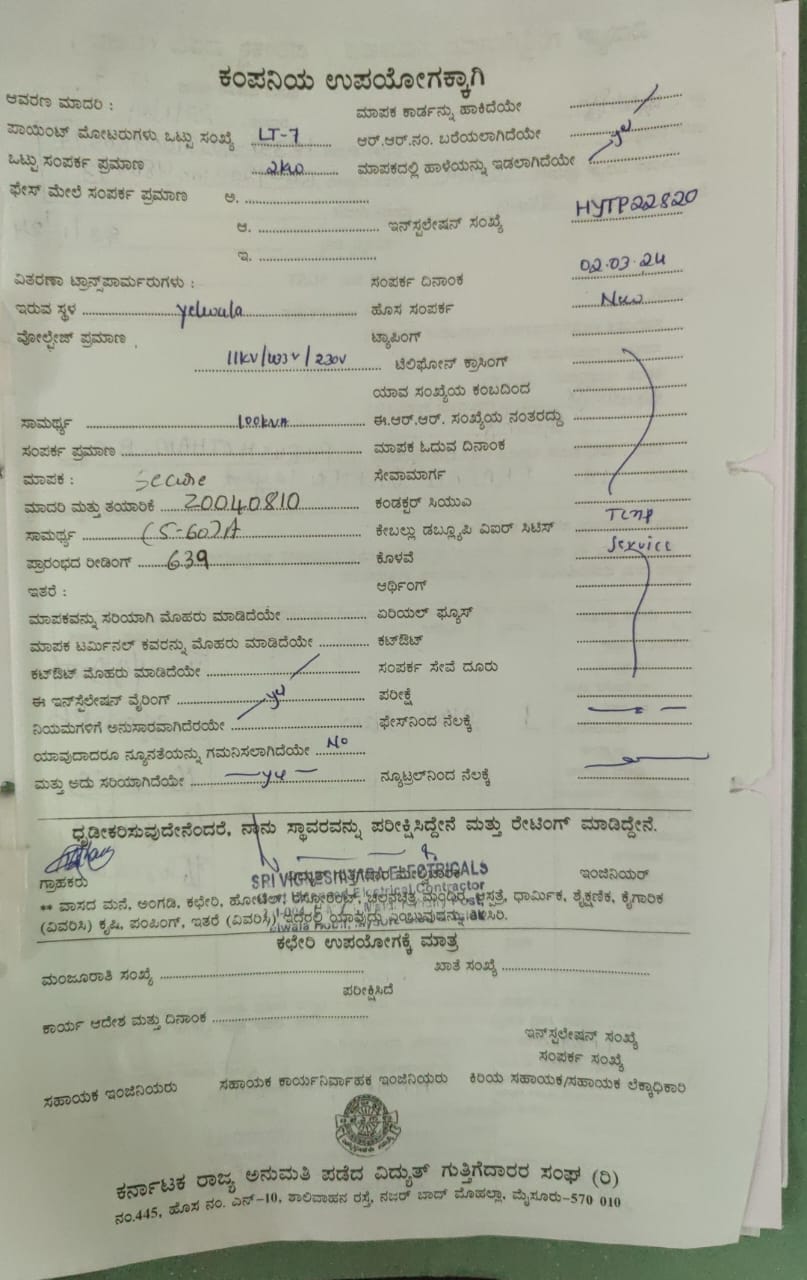 ಕಂಪನಿಯ ಉಪಯೋಗಕ್ಕಾಗಿ
ಆವರಣ ಮಾದರಿ : ಮಾಪಕ ಕಾರ್ಡನ್ನು ಹಾಕಿದೆಯೇ
ಪಾಯಿಂಟ್ ಮೋಟರುಗಳು ಒಟ್ಟು ಸಂಖ್ಯೆ LT-7 ಆರ್.ಆರ್.ನಂ. ಬರೆಯಲಾಗಿದೆಯೇ
ಒಟ್ಟು ಸಂಪರ್ಕ ಪ್ರಮಾಣ 2KW ಮಾಪಕದಲ್ಲಿ ಹಾಳೆಯನ್ನು ಇಡಲಾಗಿದೆಯೇ
ಫೇಸ್ ಮೇಲೆ ಸಂಪರ್ಕ ಪ್ರಮಾಣ ಅ.
ಆ. ಇನ್‌ಸ್ಟಲೇಷನ್ ಸಂಖ್ಯೆ HYTP22820
ಇ.
ವಿತರಣಾ ಟ್ರಾನ್ಸ್‌ಪಾರ್ಮರುಗಳು : ಸಂಪರ್ಕ ದಿನಾಂಕ 02.03.24
ಇರುವ ಸ್ಥಳ Yelwala ಹೊಸ ಸಂಪರ್ಕ New
ವೋಲ್ಟೇಜ್ ಪ್ರಮಾಣ ಟ್ಯಾಪಿಂಗ್
11KV/433V/230V ಟೆಲಿಫೋನ್ ಕ್ರಾಸಿಂಗ್
ಯಾವ ಸಂಖ್ಯೆಯ ಕಂಬದಿಂದ
ಸಾಮರ್ಥ್ಯ 100kVA ಈ.ಆರ್.ಆರ್. ಸಂಖ್ಯೆಯ ನಂತರದ್ದು
ಸಂಪರ್ಕ ಪ್ರಮಾಣ ಮಾಪಕ ಓದುವ ದಿನಾಂಕ
ಮಾಪಕ : Secure ಸೇವಾಮಾರ್ಗ
ಮಾದರಿ ಮತ್ತು ತಯಾರಿಕೆ 20040810 ಕಂಡಕ್ಟರ್ ಸಿಯುಎ
ಸಾಮರ್ಥ್ಯ (5-60)A ಕೇಬಲ್ಲು ಡಬ್ಲ್ಯೂಪಿ ವಿಐರ್ ಸಿಟಿಸ್ Temp
ಪ್ರಾರಂಭದ ರೀಡಿಂಗ್ 639 ಕೊಳವೆ Service
ಇತರೆ : ಆರ್ಥಿಂಗ್
ಮಾಪಕವನ್ನು ಸರಿಯಾಗಿ ಮೊಹರು ಮಾಡಿದೆಯೇ ಏರಿಯಲ್ ಫ್ಯೂಸ್
ಮಾಪಕ ಟರ್ಮಿನಲ್ ಕವರನ್ನು ಮೊಹರು ಮಾಡಿದೆಯೇ ಕಟ್‌ಔಟ್
ಕಟ್‌ಔಟ್ ಮೊಹರು ಮಾಡಿದೆಯೇ ಸಂಪರ್ಕ ಸೇವೆ ದೂರು
ಈ ಇನ್‌ಸ್ಟೆಲೇಷನ್ ವೈರಿಂಗ್ ಪರೀಕ್ಷೆ
ನಿಯಮಗಳಿಗೆ ಅನುಸಾರವಾಗಿದೆರಯೇ ಫೇಸ್‌ನಿಂದ ನೆಲಕ್ಕೆ
ಯಾವುದಾದರೂ ನ್ಯೂನತೆಯನ್ನು ಗಮನಿಸಲಾಗಿದೆಯೇ No
ಮತ್ತು ಅದು ಸರಿಯಾಗಿದೆಯೇ ನ್ಯೂಟ್ರಲ್‌ನಿಂದ ನೆಲಕ್ಕೆ
ಧೃಡೀಕರಿಸುವುದೇನೆಂದರೆ, ನಾನು ಸ್ಥಾವರವನ್ನು ಪರೀಕ್ಷಿಸಿದ್ದೇನೆ ಮತ್ತು ರೇಟಿಂಗ್ ಮಾಡಿದ್ದೇನೆ.
SRI VIGNESHWARA ELECTRICALS
ಗ್ರಾಹಕರು ಇಂಜಿನಿಯರ್
Electrical Contractor
** ವಾಸದ ಮನೆ, ಅಂಗಡಿ, ಕಛೇರಿ, ಹೋಟೆಲ್, ರೆಸ್ಟೋರೆಂಟ್, ಚಲನಚಿತ್ರ ಮಂದಿರ, ಆಸ್ಪತ್ರೆ, ಧಾರ್ಮಿಕ, ಶೈಕ್ಷಣಿಕ, ಕೈಗಾರಿಕ
(ವಿವರಿಸಿ) ಕೃಷಿ, ಪಂಪಿಂಗ್, ಇತರೆ (ವಿವರಿಸಿ) ಇದರಲ್ಲಿ ಯಾವುದು ಎಂಬುವುದನ್ನು ತಿಳಿಸಿರಿ.
ಕಛೇರಿ ಉಪಯೋಗಕ್ಕೆ ಮಾತ್ರ
ಮಂಜೂರಾತಿ ಸಂಖ್ಯೆ ಖಾತೆ ಸಂಖ್ಯೆ
ಪರೀಕ್ಷಿಸಿದೆ
ಕಾರ್ಯ ಆದೇಶ ಮತ್ತು ದಿನಾಂಕ
ಇನ್‌ಸ್ಟಲೇಷನ್ ಸಂಖ್ಯೆ
ಸಂಪರ್ಕ ಸಂಖ್ಯೆ
ಸಹಾಯಕ ಇಂಜಿನಿಯರು ಸಹಾಯಕ ಕಾರ್ಯನಿರ್ವಾಹಕ ಇಂಜಿನಿಯರು ಕಿರಿಯ ಸಹಾಯಕ/ಸಹಾಯಕ ಲೆಕ್ಕಾಧಿಕಾರಿ
ಕರ್ನಾಟಕ ರಾಜ್ಯ ಅನುಮತಿ ಪಡೆದ ವಿದ್ಯುತ್ ಗುತ್ತಿಗೆದಾರರ ಸಂಘ (ರಿ)
ನಂ.445, ಹೊಸ ನಂ. ಎನ್-10, ಶಾಲಿವಾಹನ ರಸ್ತೆ, ನಜರ್ ಬಾದ್ ಮೊಹಲ್ಲಾ, ಮೈಸೂರು-570 010